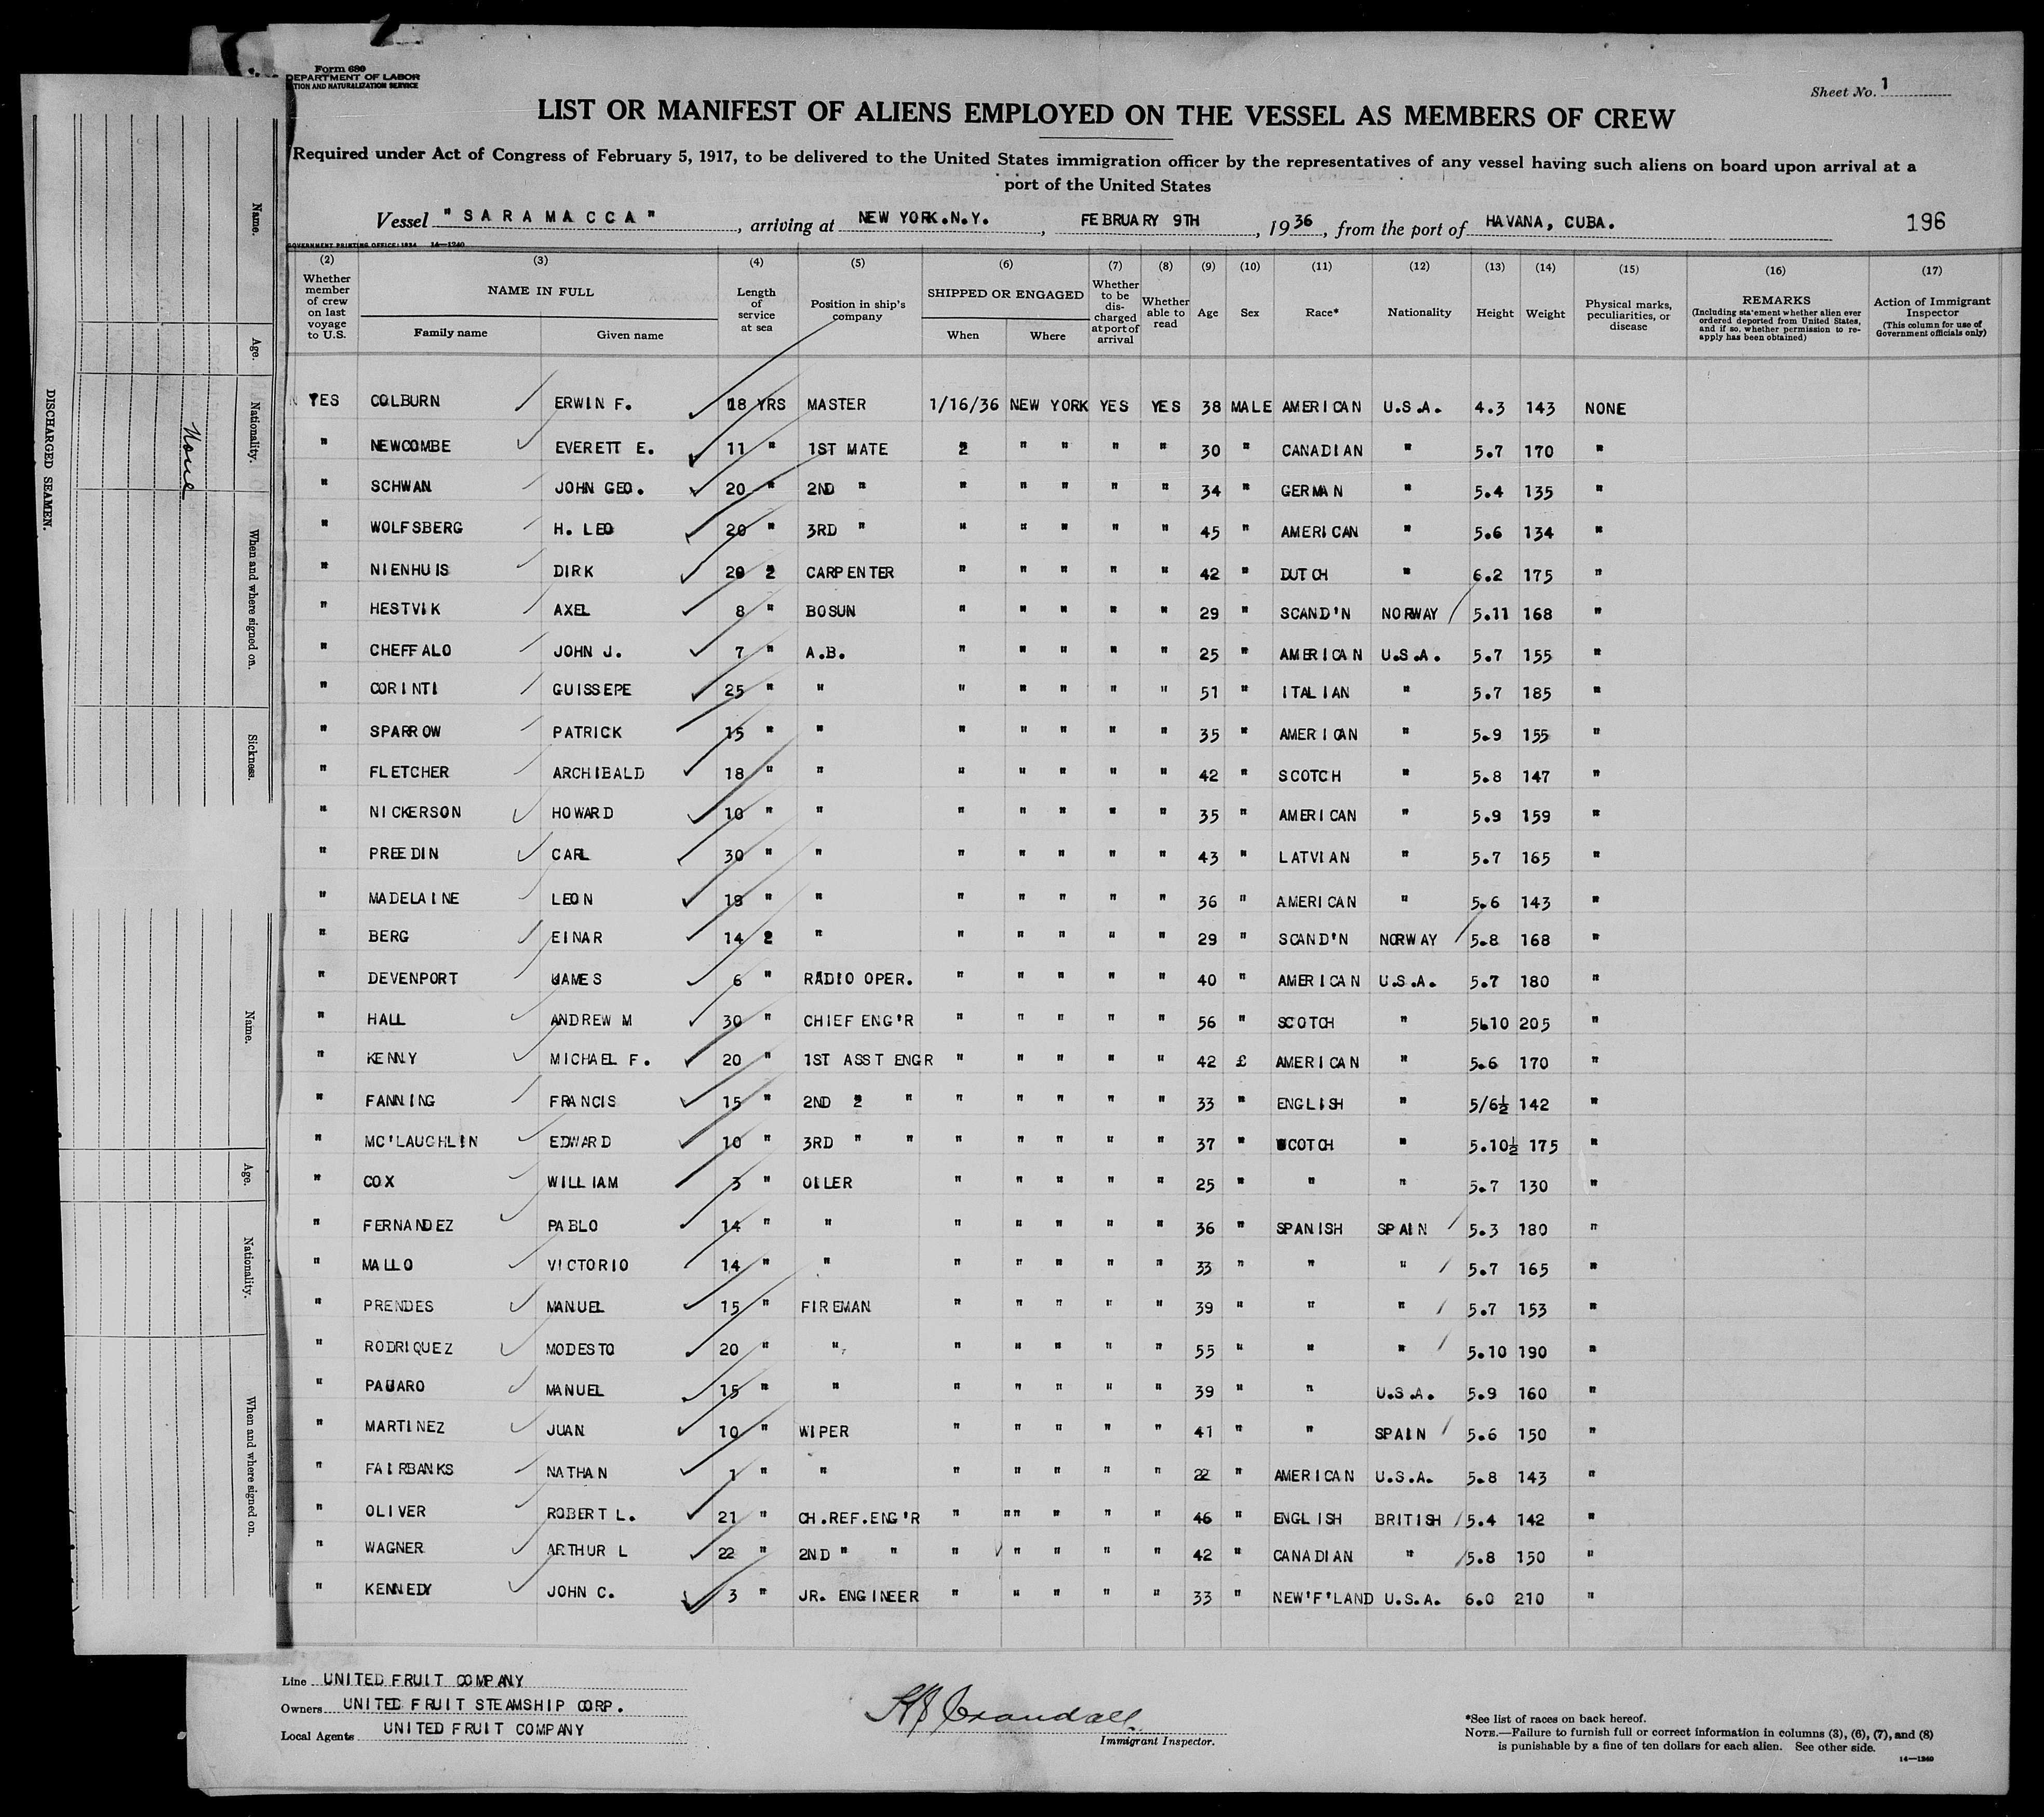 Form 680
DEPARTMENT OF LABOR
TION AND NATURALIZATION SERVICE
Sheet No. 1
LIST OR MANIFEST OF ALIENS EMPLOYED ON THE VESSEL AS MEMBERS OF CREW
Required under Act of Congress of February 5, 1917, to be delivered to the United States immigration officer by the representatives of any vessel having such aliens on board upon arrival at a
port of the United States
Vessel "SARAMACCA", arriving at NEW YORK.N.Y., FEBRUARY 9TH, 1936, from the port of HAVANA, CUBA. 196
GOVERNMENT PRINTING OFFICE: 1934 14—1240
(2) (3) (4) (5) (6) (7) (8) (9) (10) (11) (12) (13) (14) (15) (16) (17)
Whether member of crew on last voyage to U.S.
NAME IN FULL
Family name
Given name
Length of service at sea
Position in ship's company
SHIPPED OR ENGAGED
When
Where
Whether to be discharged at port of arrival
Whether able to read
Age
Sex
Race*
Nationality
Height
Weight
Physical marks, peculiarities, or disease
REMARKS
(Including statement whether alien ever ordered deported from United States, and if so, whether permission to re-apply has been obtained)
Action of Immigrant Inspector
(This column for use of Government officials only)
YES COLBURN ERWIN F. 18 YRS MASTER 1/16/36 NEW YORK YES YES 38 MALE AMERICAN U.S.A. 4.3 143 NONE
" NEWCOMBE EVERETT E. 11 " 1ST MATE 2 " " " " 30 " CANADIAN " 5.7 170 "
" SCHWAN JOHN GEO. 20 " 2ND " " " " " " 34 " GERMAN " 5.4 135 "
" WOLFSBERG H. LEO 20 " 3RD " " " " " " 45 " AMERICAN " 5.6 134 "
" NIENHUIS DIRK 20 2 CARPENTER " " " " " 42 " DUTCH " 6.2 175 "
" HESTVIK AXEL 8 " BOSUN " " " " " 29 " SCAND'N NORWAY 5.11 168 "
" CHEFFALO JOHN J. 7 " A.B. " " " " " 25 " AMERICAN U.S.A. 5.7 155 "
" CORINTI GUISSEPE 25 " " " " " " " 51 " ITALIAN " 5.7 185 "
" SPARROW PATRICK 15 " " " " " " " 35 " AMERICAN " 5.9 155 "
" FLETCHER ARCHIBALD 18 " " " " " " " 42 " SCOTCH " 5.8 147 "
" NICKERSON HOWARD 10 " " " " " " " 35 " AMERICAN " 5.9 159 "
" PREEDIN CARL 30 " " " " " " " 43 " LATVIAN " 5.7 165 "
" MADELAINE LEON 18 " " " " " " " 36 " AMERICAN " 5.6 143 "
" BERG EINAR 14 2 " " " " " " 29 " SCAND'N NORWAY 5.8 168 "
" DEVENPORT JAMES 6 " RADIO OPER. " " " " " 40 " AMERICAN U.S.A. 5.7 180 "
" HALL ANDREW M 30 " CHIEF ENG'R " " " " " 56 " SCOTCH " 5.10 205 "
" KENNY MICHAEL F. 20 " 1ST ASST ENGR " " " " " 42 £ AMERICAN " 5.6 170 "
" FANNING FRANCIS 15 " 2ND 2 " " " " " " 33 " ENGLISH " 5/6½ 142 "
" MC'LAUGHLIN EDWARD 10 " 3RD " " " " " " " 37 " SCOTCH " 5.10½ 175 "
" COX WILLIAM 3 " OILER " " " " " 25 " " " 5.7 130 "
" FERNANDEZ PABLO 14 " " " " " " " 36 " SPANISH SPAIN 5.3 180 "
" MALLO VICTORIO 14 " " " " " " " 33 " " " 5.7 165 "
" PRENDES MANUEL 15 " FIREMAN " " " " " 39 " " " 5.7 153 "
" RODRIQUEZ MODESTO 20 " " " " " " " 55 " " " 5.10 190 "
" PAJARO MANUEL 15 " " " " " " " 39 " " U.S.A. 5.9 160 "
" MARTINEZ JUAN 10 " WIPER " " " " " 41 " " SPAIN 5.6 150 "
" FAIRBANKS NATHAN 1 " " " " " " " 22 " AMERICAN U.S.A. 5.8 143 "
" OLIVER ROBERT L. 21 " CH.REF.ENG'R " "" " " " 46 " ENGLISH BRITISH 5.4 142 "
" WAGNER ARTHUR L 22 " 2ND " " " " " " " 42 " CANADIAN " 5.8 150 "
" KENNEDY JOHN C. 3 " JR. ENGINEER " " " " " 33 " NEW'F'LAND U.S.A. 6.0 210 "
Line UNITED FRUIT COMPANY
Owners UNITED FRUIT STEAMSHIP CORP.
Local Agents UNITED FRUIT COMPANY
Immigrant Inspector.
*See list of races on back hereof.
NOTE.—Failure to furnish full or correct information in columns (3), (6), (7), and (8)
is punishable by a fine of ten dollars for each alien. See other side.
14—1240
DISCHARGED SEAMEN.
Name.
Age.
Nationality.
When and where signed on.
Sickness.
None
Name.
Age.
Nationality.
When and where signed on.